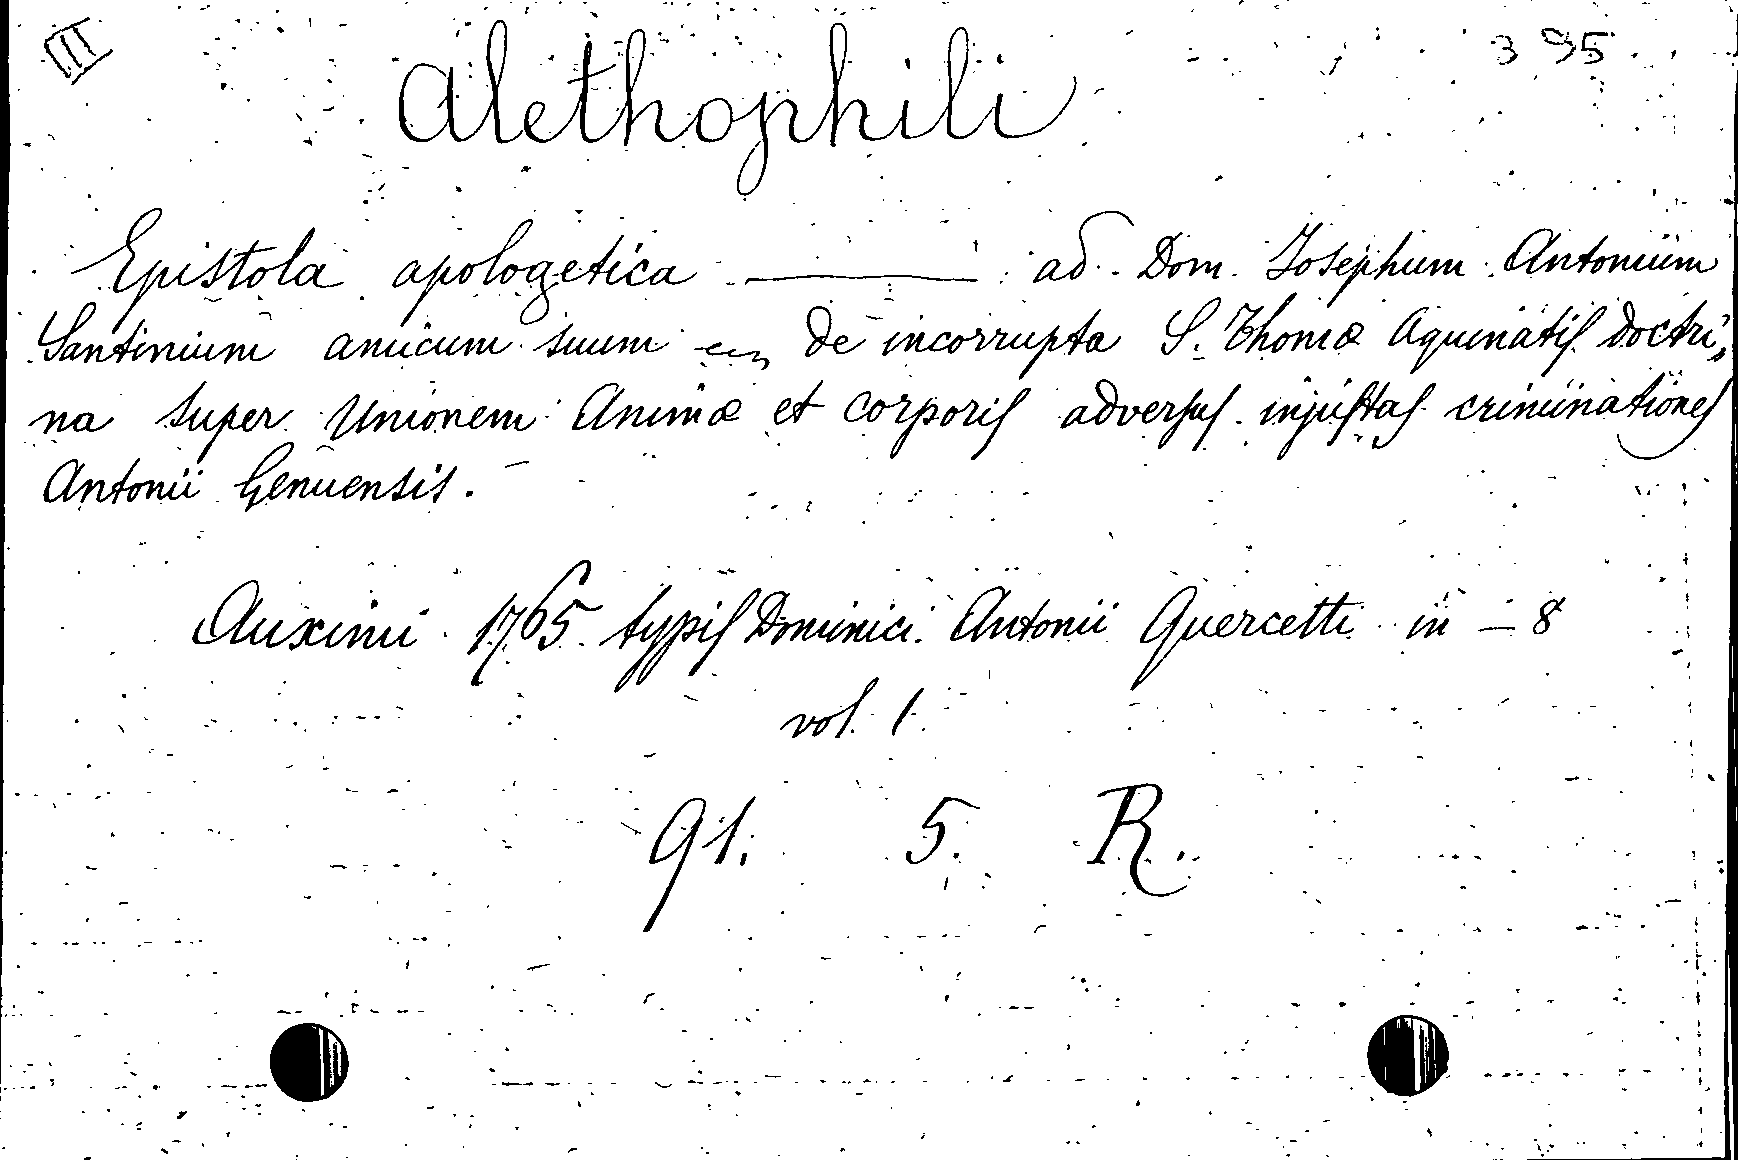 III 395
Alethophili
Epistola apologetica ——— ad Dom. Josephum Antonium
Santinium amicum suum de incorrupta S. Thomæ Aquinatis doctri,
na super Unionem Animæ et corporis adversus injustas criminationes
Antonii Genuensis.
Auximi 1765 typis Dominici Antonii Quercetti in - 8
vol. 1.
91. 5. R.